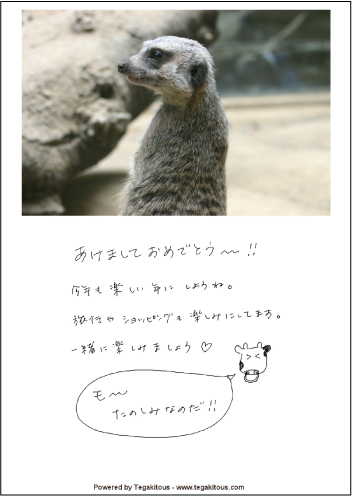 あけまして おめでとう〜!!
今年も 楽しい 年に しようね。
旅行や ショッピングも 楽しみにしてます。
一緒に 楽しみましょう♡
モ〜
たのしみなのだ!!
Powered by Tegakitous - www.tegakitous.com